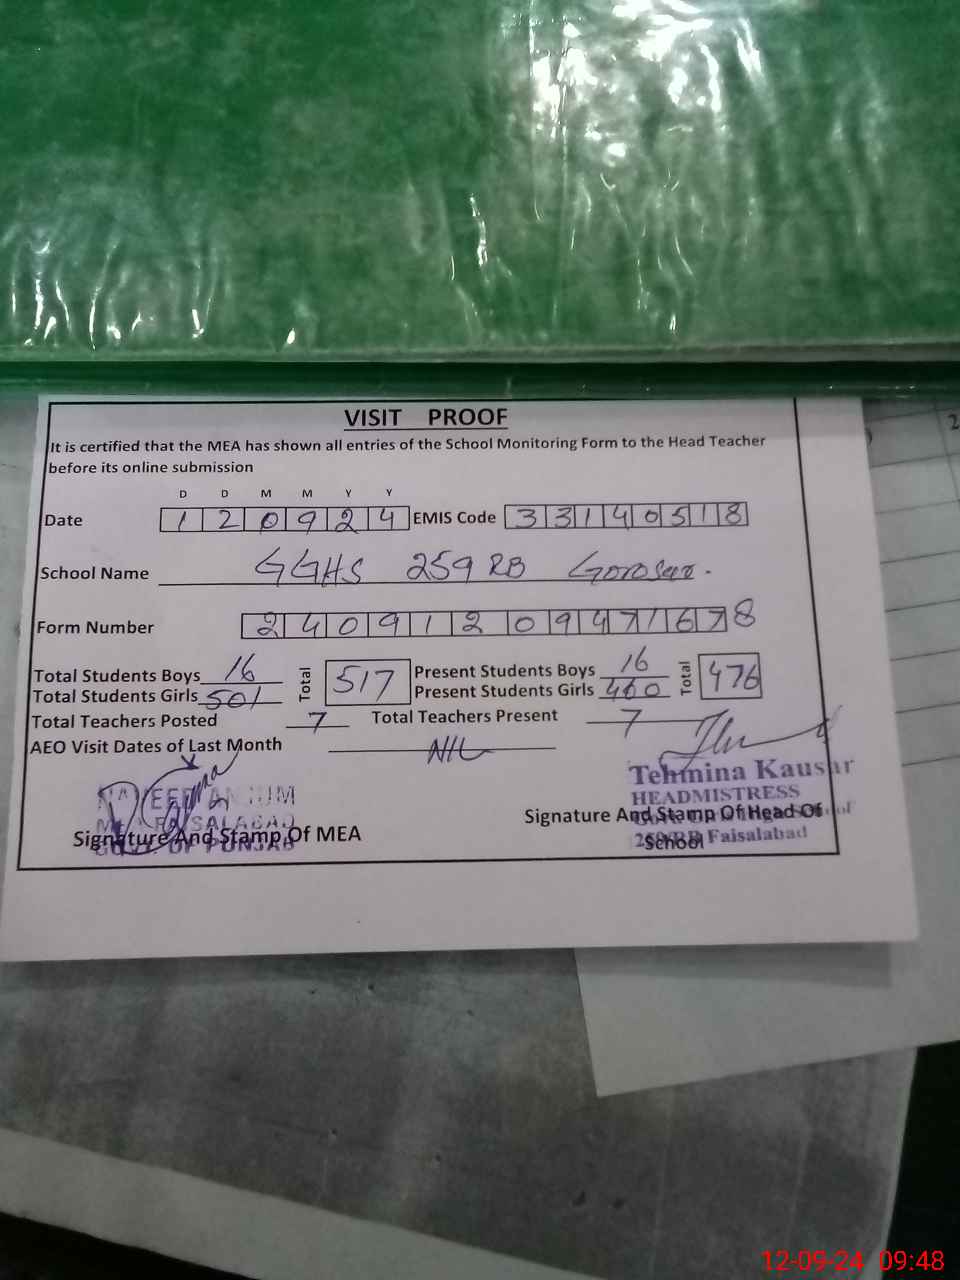 VISIT PROOF
It is certified that the MEA has shown all entries of the School Monitoring Form to the Head Teacher
before its online submission
D D M M Y Y
Date 1 2 0 9 2 4 EMIS Code 3 3 1 4 0 5 1 8
School Name GGHS 259 RB Gorosar.
Form Number 2 4 0 9 1 2 0 9 4 7 1 6 7 8
Total Students Boys 16 Total 517 Present Students Boys 16 Total 476
Total Students Girls 501 Present Students Girls 460
Total Teachers Posted 7 Total Teachers Present 7
AEO Visit Dates of Last Month NIL
Tehmina Kausar
HEADMISTRESS
Signature And Stamp Of Head Of
School
259 RB Faisalabad
MEA FAISALABAD
Signature And Stamp Of MEA
GOVT. OF PUNJAB
2
12-09-24 09:48